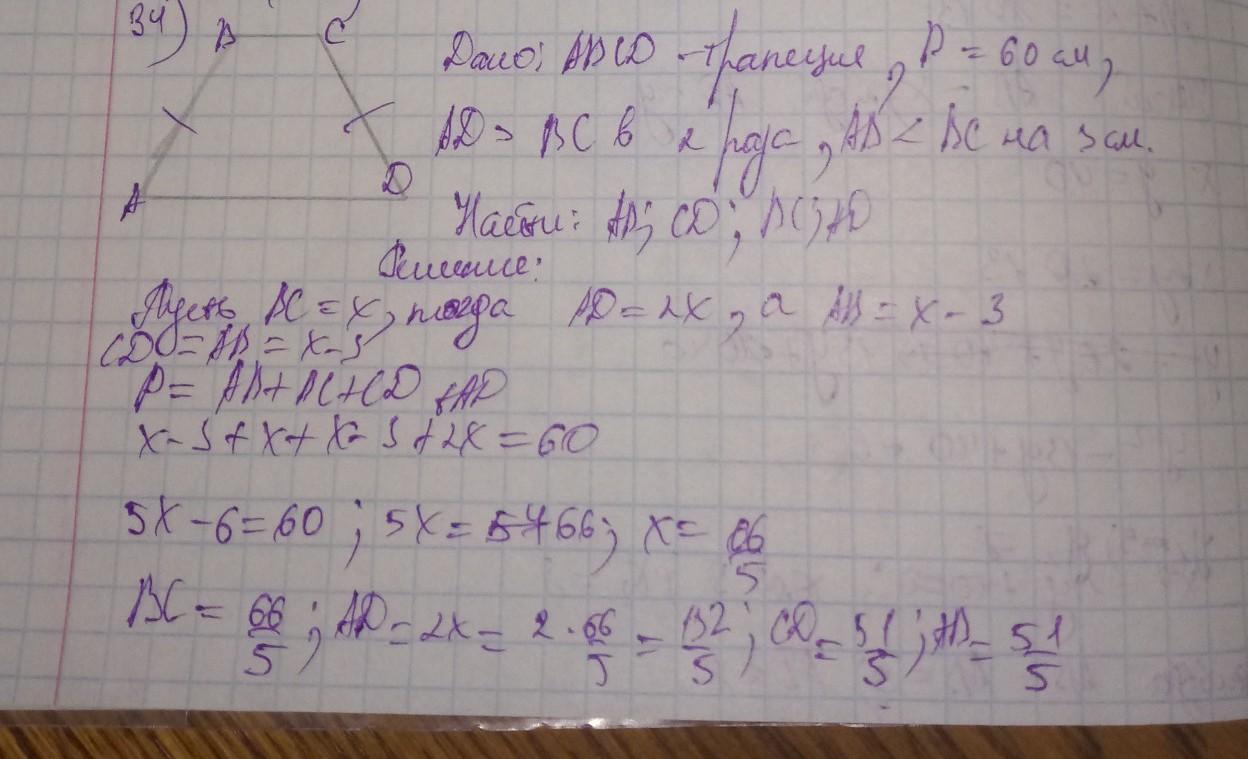 34) B C
A D
Дано: ABCD - трапеция, P = 60 см,
AD > BC в 2 раза, AB < BC на 3 см.
Найти: AB; CD; BC; AD
Решение:
Пусть BC = x, тогда AD = 2x, а AB = x - 3
CD = AB = x - 3
P = AB + BC + CD + AD
x - 3 + x + x - 3 + 2x = 60
5x - 6 = 60 ; 5x = 66; x = 66/5
BC = 66/5 ; AD = 2x = 2 · 66/5 = 132/5 ; CD = 51/5 ; AB = 51/5